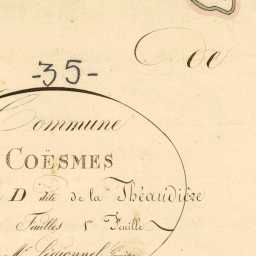 de
-35-
Commune
COËSMES
D dite de la Théaudière
Feuilles 1e Feuille
Mr